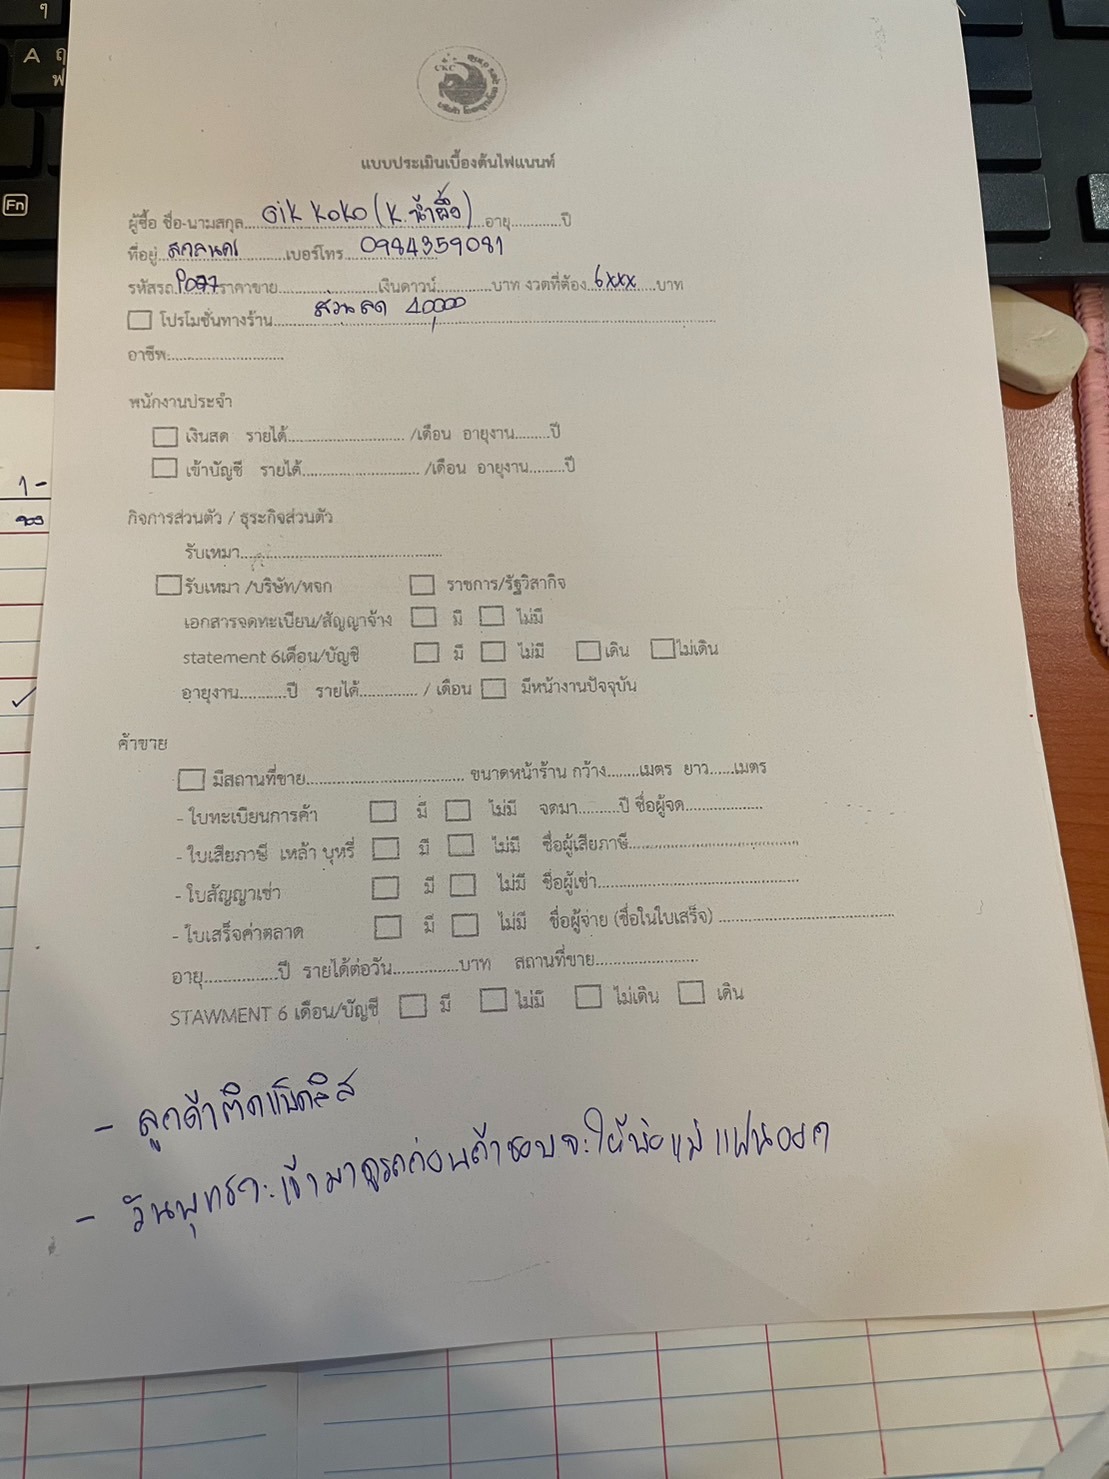 ๆ
A ฤ
ฟ
Fn
CKC
แบบประเมินเบื้องต้นไฟแนนท์
ผู้ซื้อ ชื่อ-นามสกุล....Gik KoKo (K. น้ำผึ้ง)....อายุ............ปี
ที่อยู่..สกลนคร............เบอร์โทร...0984359081
รหัสรถ.P077ราคาขาย........................เงินดาวน์.............บาท งวดที่ต้อง.6xxx.....บาท
☐ โปรโมชั่นทางร้าน..........ส่วนลด 40,000..........
อาชีพ:..........................
พนักงานประจำ
☐ เงินสด รายได้............................ /เดือน อายุงาน........ปี
☐ เข้าบัญชี รายได้............................ /เดือน อายุงาน........ปี
1 -
กิจการส่วนตัว / ธุระกิจส่วนตัว
รับเหมา................................................
☐ รับเหมา /บริษัท/หจก ☐ ราชการ/รัฐวิสากิจ
เอกสารจดทะเบียน/สัญญาจ้าง ☐ มี ☐ ไม่มี
statement 6เดือน/บัญชี ☐ มี ☐ ไม่มี ☐ เดิน ☐ ไม่เดิน
อายุงาน..........ปี รายได้.............. / เดือน ☐ มีหน้างานปัจจุบัน
ค้าขาย
☐ มีสถานที่ขาย...................................... ขนาดหน้าร้าน กว้าง.......เมตร ยาว......เมตร
- ใบทะเบียนการค้า ☐ มี ☐ ไม่มี จดมา.........ปี ชื่อผู้จด...................
- ใบเสียภาษี เหล้า บุหรี่ ☐ มี ☐ ไม่มี ชื่อผู้เสียภาษี..........................................
- ใบสัญญาเช่า ☐ มี ☐ ไม่มี ชื่อผู้เช่า..................................................
- ใบเสร็จค่าตลาด ☐ มี ☐ ไม่มี ชื่อผู้จ่าย (ชื่อในใบเสร็จ) ...........................................
อายุ..................ปี รายได้ต่อวัน...............บาท สถานที่ขาย.........................
STAWMENT 6 เดือน/บัญชี ☐ มี ☐ ไม่มี ☐ ไม่เดิน ☐ เดิน
- ลูกค้าติดแบล็คลิส
- วันพุทธจะเข้ามาดูรถก่อนถ้าชอบจะให้พ่อแม่แฟนออก